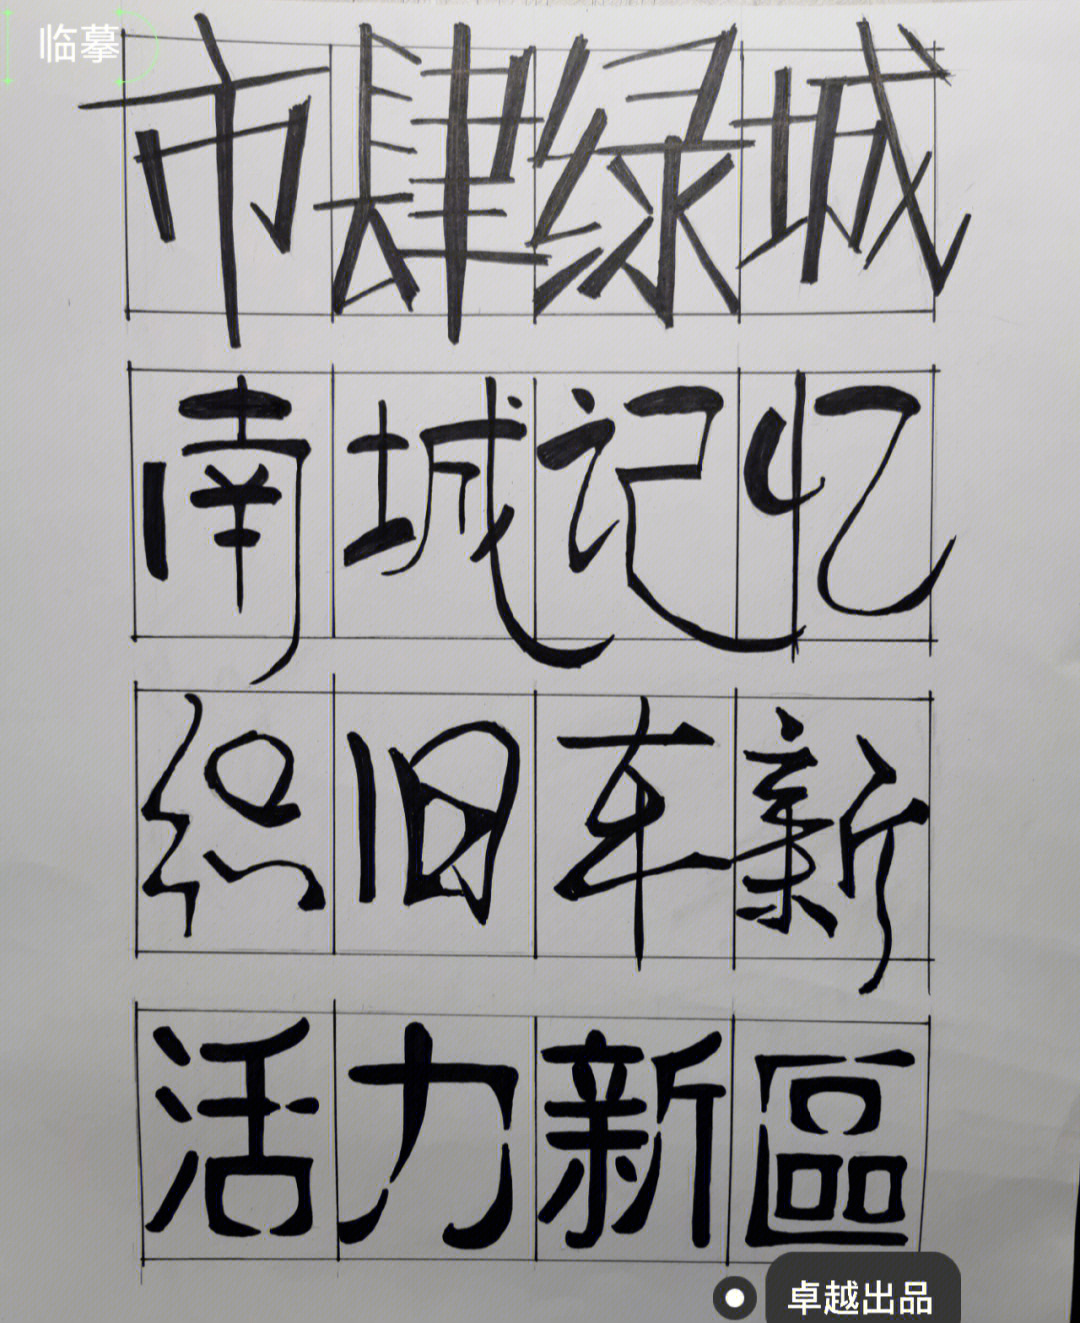 临摹
市肆绿城
南城记忆
织旧车新
活力新區
卓越出品